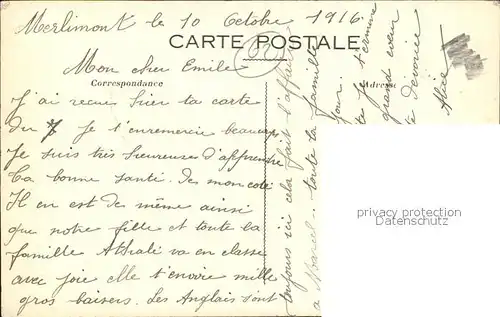 Merlimont le 10 Octobre 1916
CARTE POSTALE
Mon cher Emile
Correspondance
Adresse
J'ai recue hier ta carte
du 7 Je t'enremercie beaucoup
Je suis très heureuse d'apprendre
ta bonne santé. De mon coté
Il en est de même ainsi
que notre fille et toute la
famille Athali va en classe
avec joie elle t'envoie mille
gros baisers. Les Anglais sont
toujours ici cela fait l'affaire
a Marcel toute la famille
jour.
te Je termine
grand coeur
te dévorice
Alice
privacy protection
Datenschutz